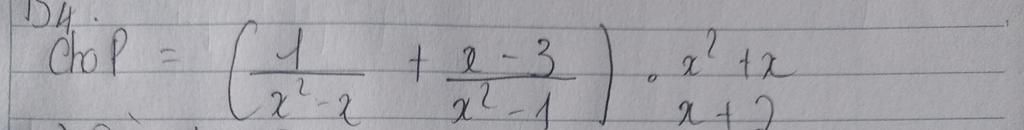 D4.
Cho P = ( 1 / x² - x + x - 3 / x² - 1 ) . x² + x / x + 2